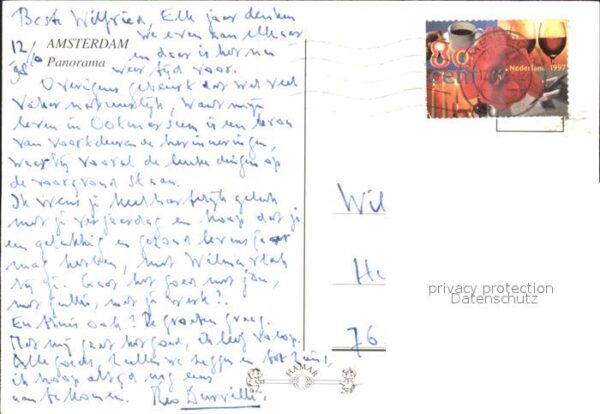 Beste Wilfried, Elk jaar denken
we even aan elkaar
12/0
AMSTERDAM
en daar is het nu
98
Panorama
weer tijd voor.
Overigens gebeurt dat wel veel
vaker natuurlijk, want mijn
leven in Ootmarsum is een leven
van voortdurende herinneringen,
waarbij vooral de leuke dingen op
de voorgrond staan.
Ik wens je heel hartelijk geluk
met je verjaardag en hoop dat je
een gelukkig en gezond levensjaar
mag hebben, met Wilma vlak
bij je. Gaat het goed met jou,
met jullie, met je werk?.
En thuis ook? De groeten graag.
Met mij gaat het goed, ik leef volop.
Alle goeds, zullen we zeggen en tot ziens,
ik hoop altijd nog eens
aan te komen. Theo
80
cent
Nederland 1997
Wil
H
76
privacy protection
Datenschutz
HAMAR